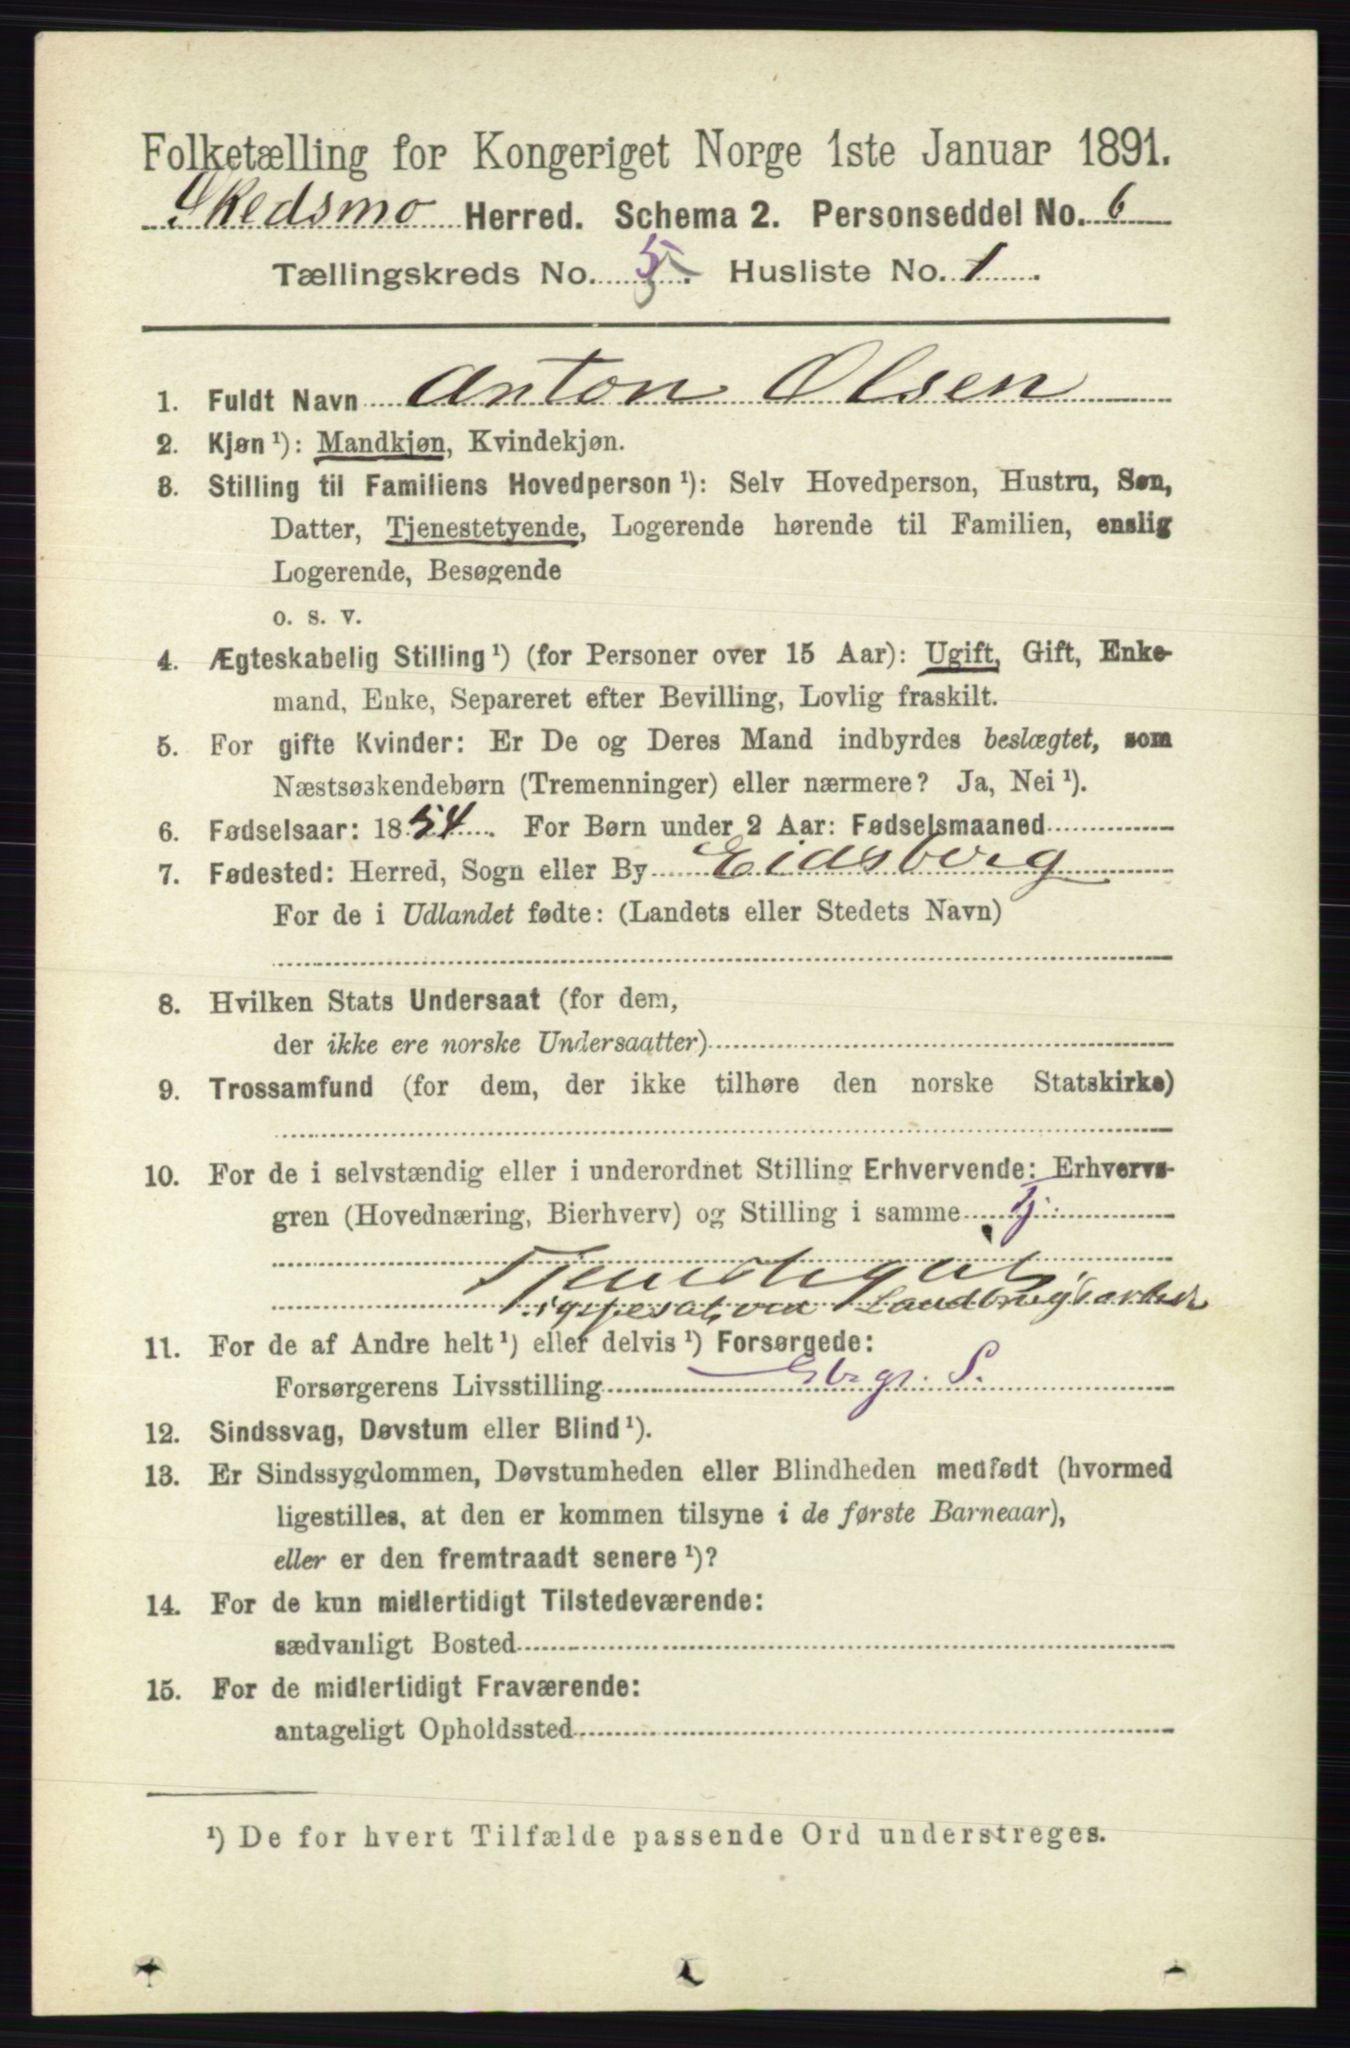 Folketælling for Kongeriget Norge 1ste Januar 1891.
Skedsmo Herred. Schema 2. Personseddel No. 6
Tællingskreds No. 5. Husliste No. 1.
1. Fuldt Navn Anton Olsen
2. Kjøn ¹): Mandkjøn, Kvindekjøn.
3. Stilling til Familiens Hovedperson ¹): Selv Hovedperson, Hustru, Søn,
Datter, Tjenestetyende, Logerende hørende til Familien, enslig
Logerende, Besøgende
o. s. v.
4. Ægteskabelig Stilling ¹) (for Personer over 15 Aar): Ugift, Gift, Enke-
mand, Enke, Separeret efter Bevilling, Lovlig fraskilt.
5. For gifte Kvinder: Er De og Deres Mand indbyrdes beslægtet, som
Næstsøskendebørn (Tremenninger) eller nærmere? Ja, Nei ¹).
6. Fødselsaar: 1854. For Børn under 2 Aar: Fødselsmaaned
7. Fødested: Herred, Sogn eller By Eidsberg
For de i Udlandet fødte: (Landets eller Stedets Navn)
8. Hvilken Stats Undersaat (for dem,
der ikke ere norske Undersaatter)
9. Trossamfund (for dem, der ikke tilhøre den norske Statskirke)
10. For de i selvstændig eller i underordnet Stilling Erhvervende: Erhvervs-
gren (Hovednæring, Bierhverv) og Stilling i samme
Landbrugsarbeide
11. For de af Andre helt ¹) eller delvis ¹) Forsørgede:
Forsørgerens Livsstilling
12. Sindssvag, Døvstum eller Blind ¹).
13. Er Sindssygdommen, Døvstumheden eller Blindheden medfødt (hvormed
ligestilles, at den er kommen tilsyne i de første Barneaar),
eller er den fremtraadt senere ¹)?
14. For de kun midlertidigt Tilstedeværende:
sædvanligt Bosted
15. For de midlertidigt Fraværende:
antageligt Opholdssted
¹) De for hvert Tilfælde passende Ord understreges.